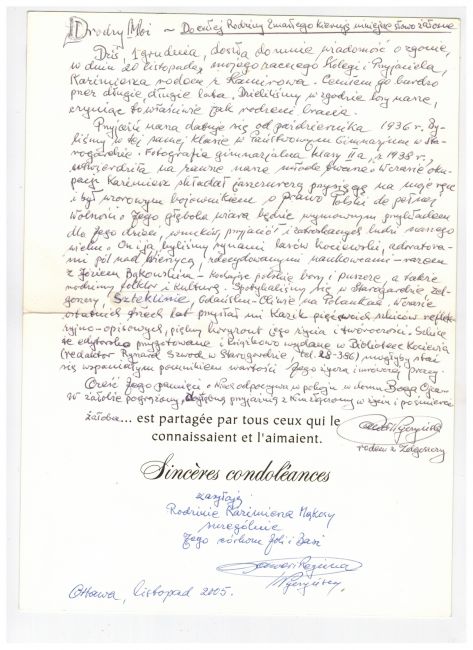 Drodzy Moi ~ Do całej Rodziny Zmarłego kieruję niniejsze słowo żałobne
Dziś, 1 grudnia, doszła do mnie wiadomość o zgonie,
w dniu 20 listopada, mojego zacnego Kolegi i Przyjaciela,
Kazimierza rodem z Kamirowa. Ceniłem go bardzo
przez długie, długie lata. Dzieliliśmy w zgodzie losy nasze,
czyniąc to właściwie jak rodzeni bracia.
Przyjaźń nasza datuje się od października 1936 r. By-
liśmy w tej samej klasie w Państwowym Gimnazjum w Sta-
rogardzie. Fotografia gimnazjalna klasy II a, z 1938 r.,
utwierdziła na zawsze nasze młode twarze. W czasie oku-
pacji Kazimierz składał zaszczytną przysięgę na moje ręce
i był wzorowym bojownikiem o prawo Polski do pełnej
wolności. Jego głęboka wiara będzie wymownym przykładem
dla Jego dzieci, wnuków, przyjaciół i ludzi naszego
wieku. On i ja byliśmy synami lasów kociewskich, adorato-
rami pól nad Wierzycą, zdecydowanymi naukowcami - razem
z Józiem Bąkowskim - kochając polskie bory i puszcze, a także
rodzimy folklor i kulturę. Spotykaliśmy się w Starogardzie, Zel-
goszczy, Szteklinie, Gdańsku-Oliwie na Polankach. W czasie
ostatnich trzech lat przysłał mi Kazik pięć swoich szkiców reflek-
syjno-opisowych, piękny horyzont jego życia i twórczości. Szkice
te edytorsko przygotowane i książkowo wydane w Bibliotece Kociewia
(redaktor Ryszard Szwoch w Starogardzie, tel. 28-386) mogłyby stać
się wspaniałym pomnikiem wartości Jego życia i owocnej pracy.
Cześć Jego pamięci. Niech odpoczywa w pokoju w domu Boga Ojca.
W żałobie pogrążony, dozgonny przyjaźnią z Kazikiem w życiu i po śmierci
żałoba... est partagée par tous ceux qui le
connaissaient et l'aimaient.
rodem z Zelgoszczy
Sincères condoléances
zasyłają
Rodzinie Kazimierza Mąkosy
szczególnie
Jego córkom Joli i Basi
Ottawa, listopad 2005.